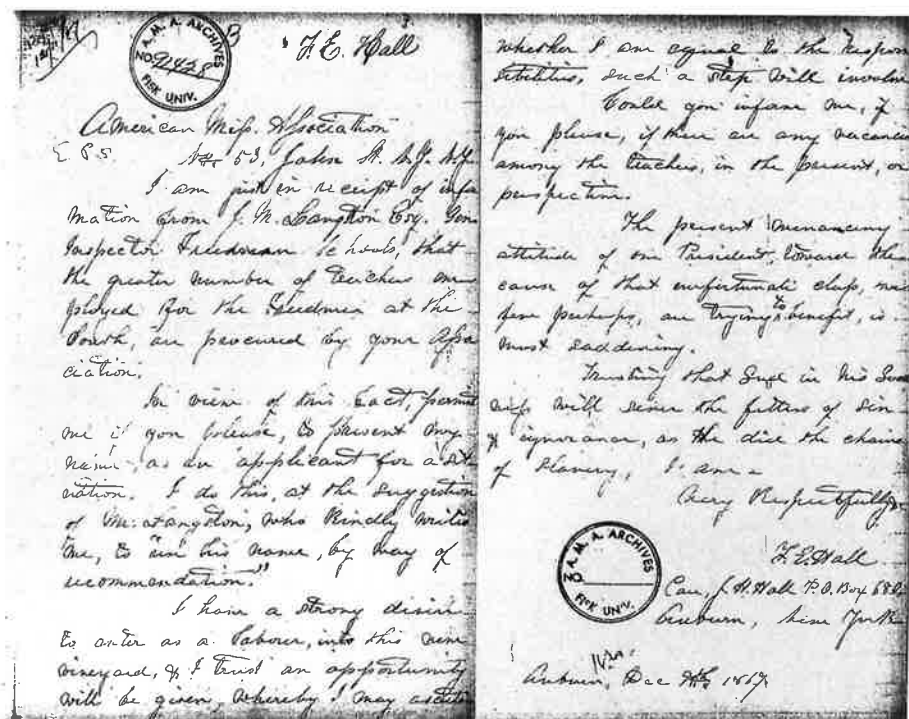 A. M. A. ARCHIVES
NO. 91428
FISK UNIV.
F. E. Hall
American Miss. Association
E. P. S. 53, John St. N.Y. N.Y.
I am just in receipt of infor
mation from J. M. Langston Esq. Gen
Inspector Freedmen Schools, that
the greater number of teachers em
ployed for the Freedmen at the
South, are procured by your Asso
ciation.
In view of this fact, permit
me if you please, to present my
name, as an applicant for a sit
uation. I do this, at the suggestion
of Mr. Langston, who kindly writes
me, to "use his name, by way of
recommendation."
I have a strong desire
to enter as a labourer, into this new
vineyard, & I trust an opportunity
will be given, whereby I may
whether I am equal to the respon
sibilities, such a step will involve
Could you inform me, if
you please, if there are any vacancies
among the teachers, in the present, or
perspective.
The present menacing
attitude of our President, toward the
cause of that unfortunate class, we
perhaps, are trying to benefit, is
most saddening.
Trusting that God in his
will sever the fetters of sin
& ignorance, as He did the chains
of Slavery, I am
Very Respectfully
F. E. Hall
Care, J. H. Hall P.O. Box 686
Auburn, New York
A. M. A. ARCHIVES
NO.
FISK UNIV.
Auburn, Dec 1867